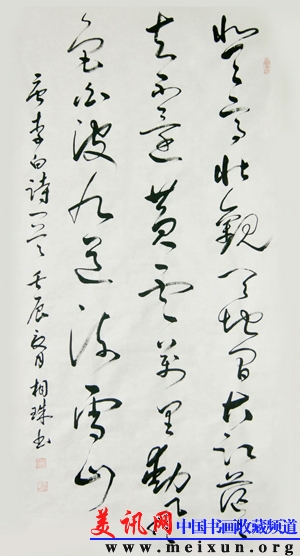 登高壮觀天地间大江茫茫
去不還黄雲萬里動風
色白波九道流雪山
唐李白詩一首壬辰夏月相珠书
美讯网 中国书画收藏频道
www.meixun.org